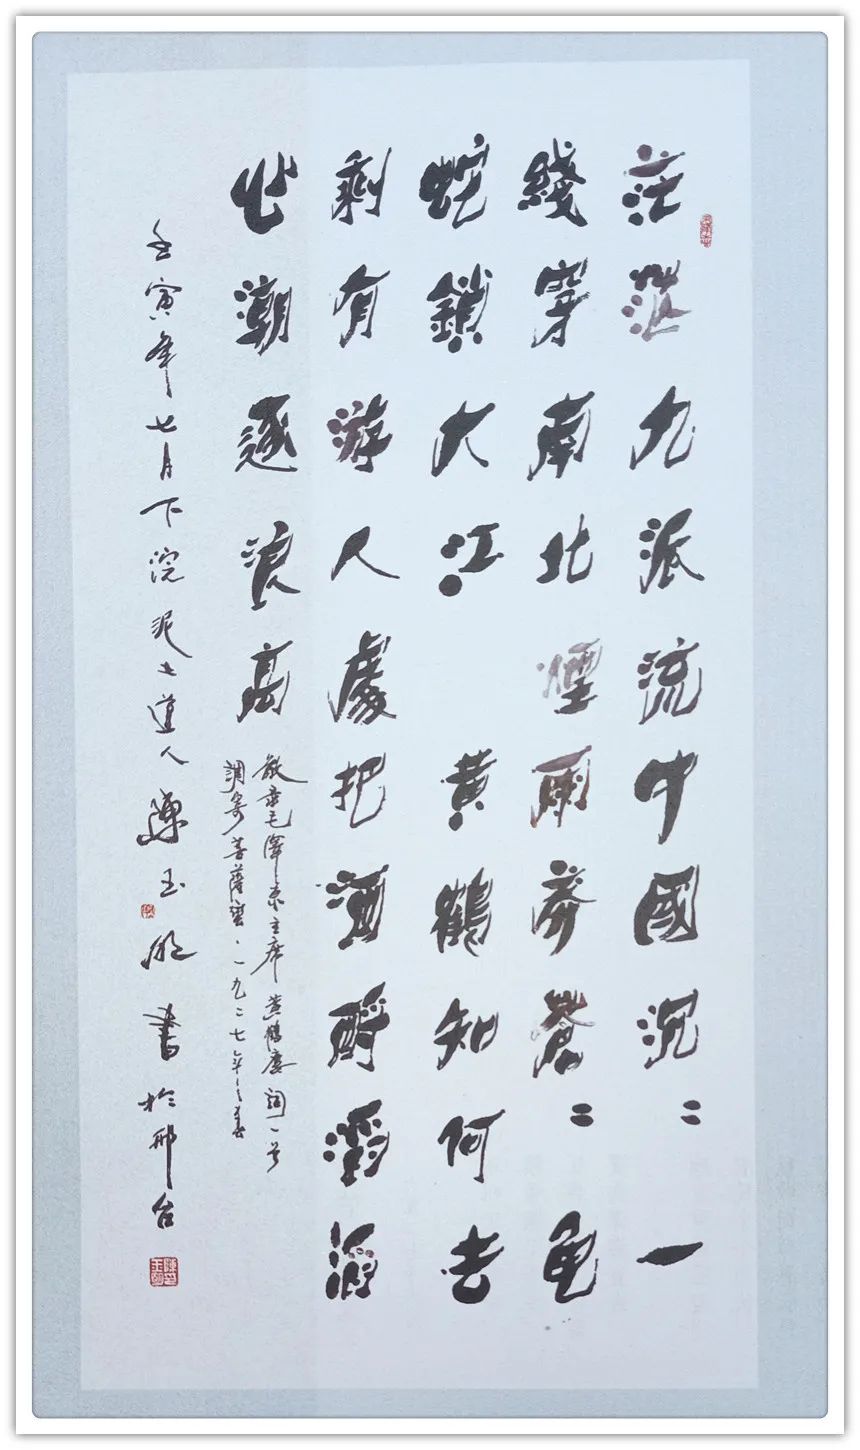 茫茫九派流中國沉〻一
綫穿南北煙雨莽蒼〻龜
蛇鎖大江 黄鶴知何去
剩有游人處把酒酹滔滔
心潮逐浪高
敬录毛澤東主席黄鶴樓詞一首
調寄菩薩蠻·一九二七年之春
壬寅年七月下浣泥土道人陳玉明書於邢台